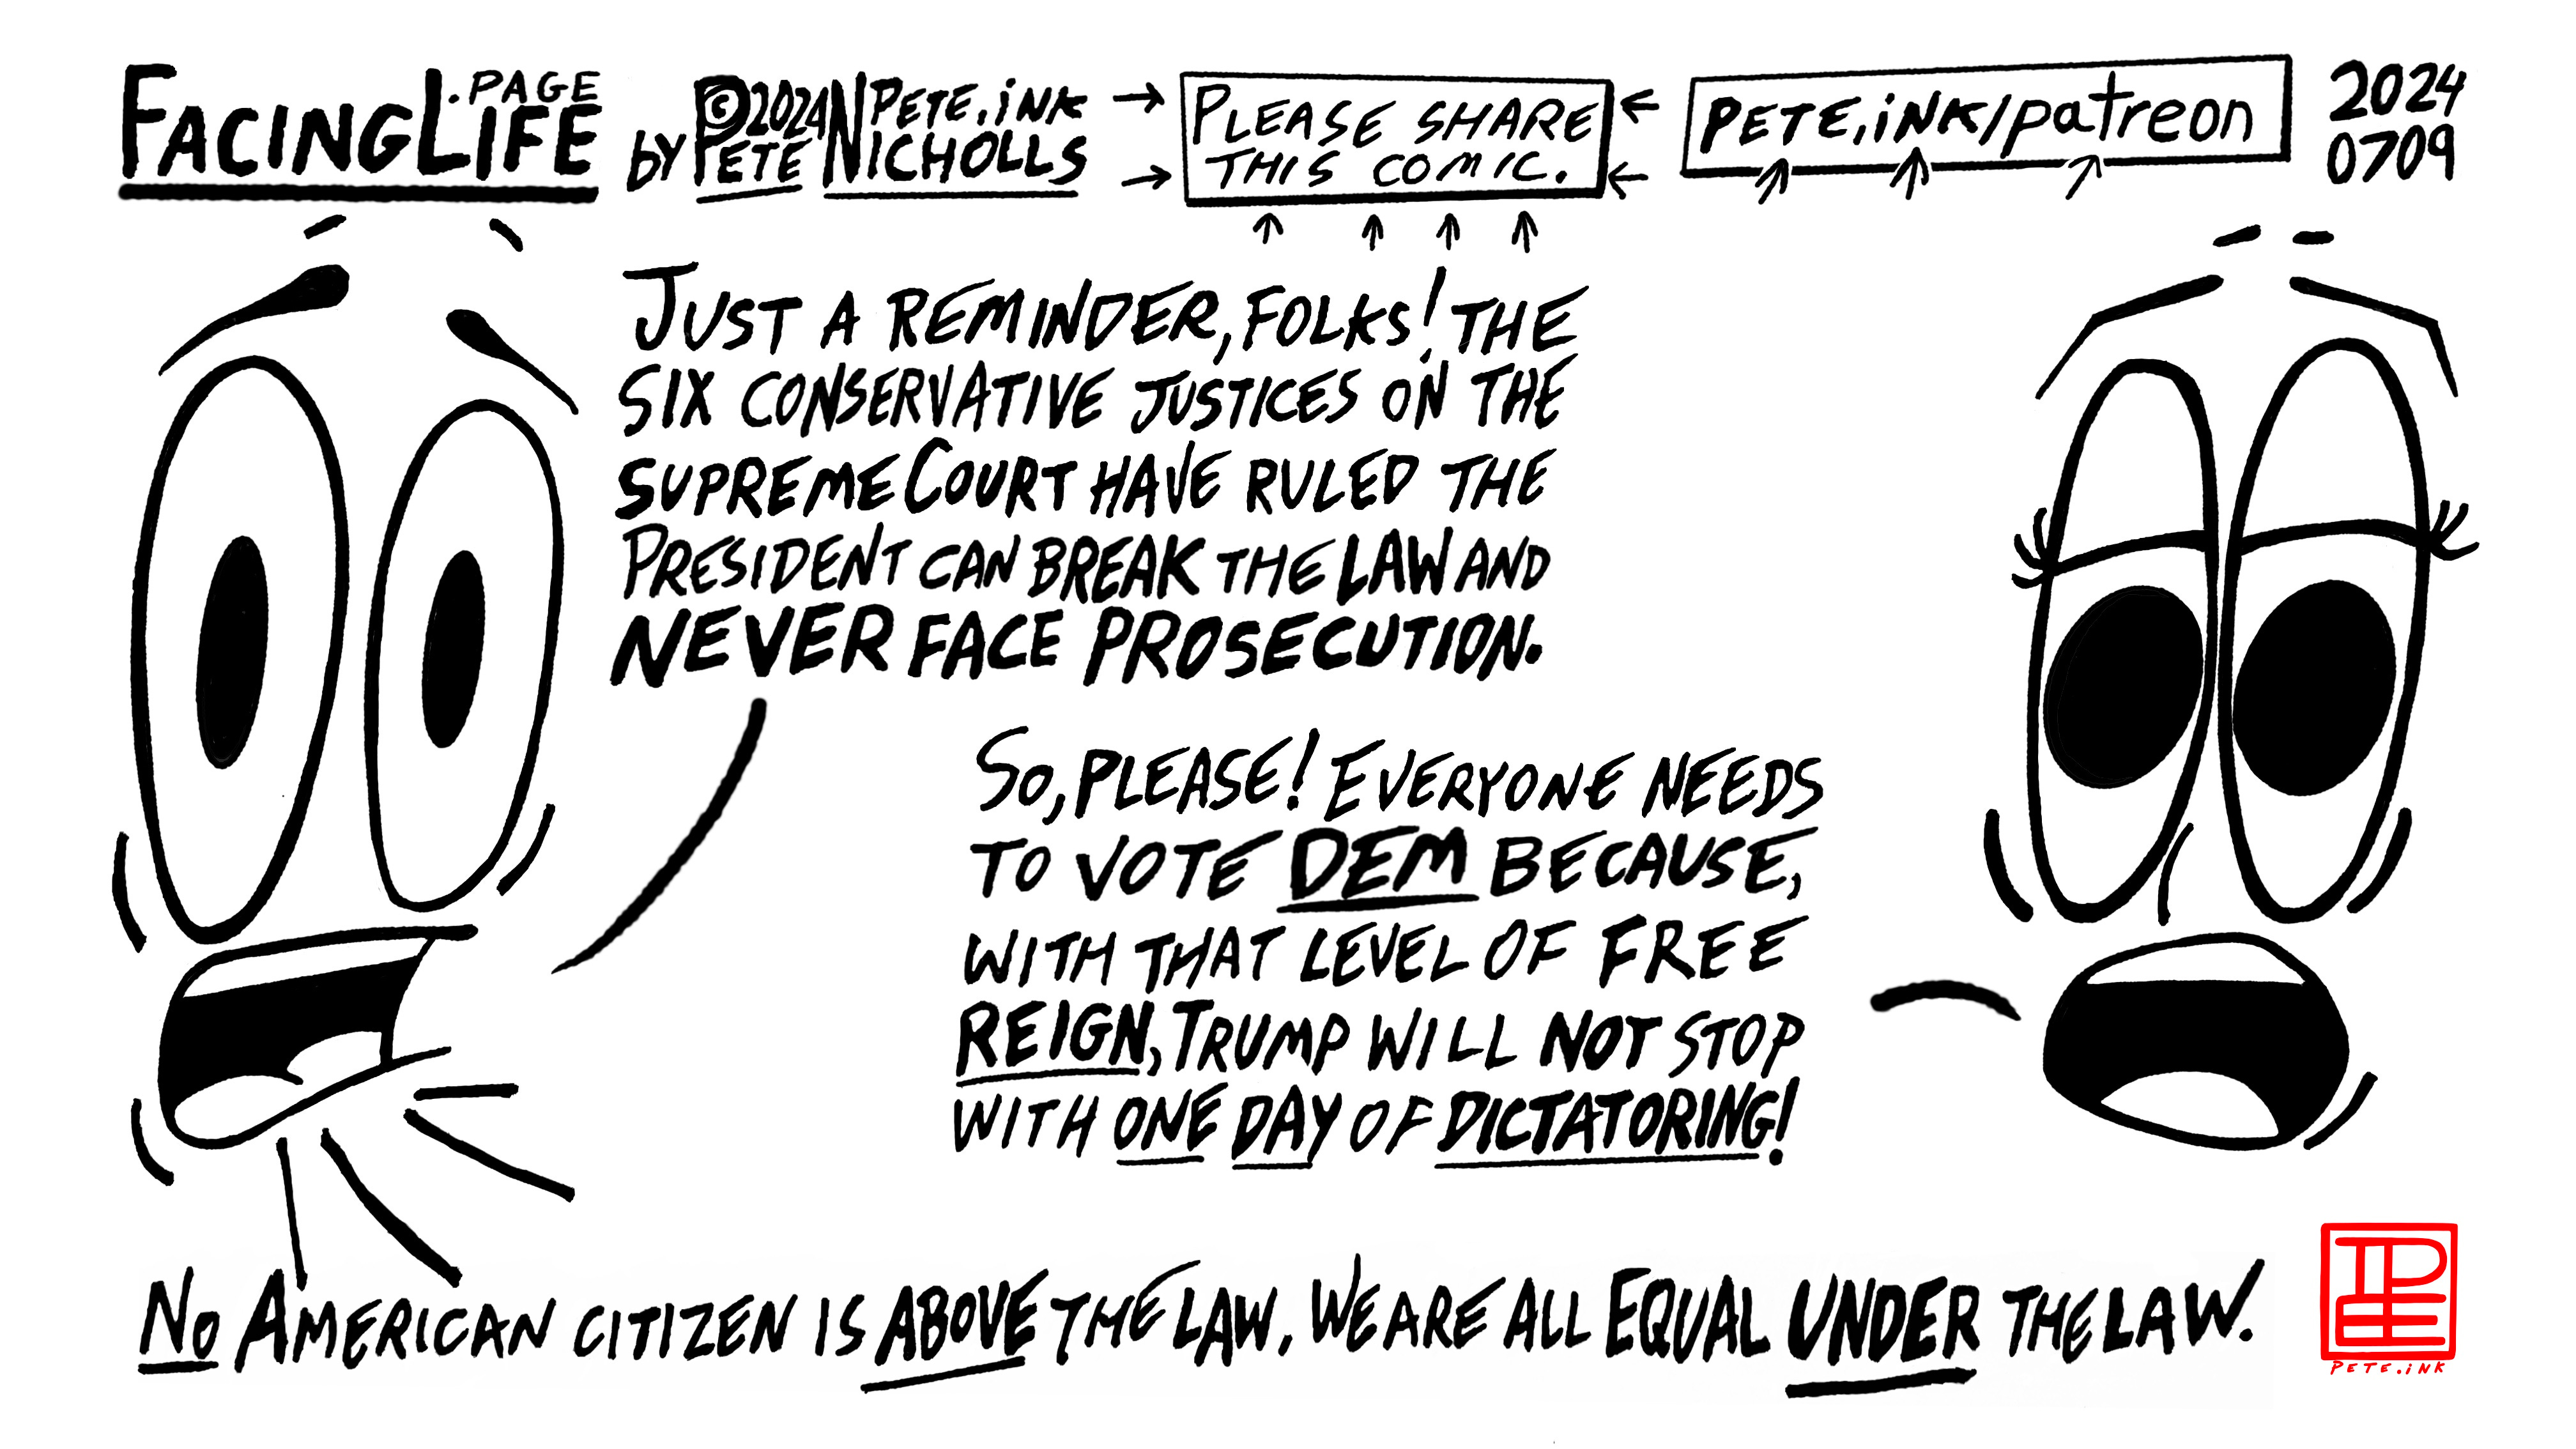 FACINGLIFE.PAGE
by PETE NICHOLLS
©2024 PETE.iNK
PLEASE SHARE
THIS COMIC.
PETE.iNK/patreon
2024
0709
JUST A REMINDER, FOLKS! THE
SIX CONSERVATIVE JUSTICES ON THE
SUPREME COURT HAVE RULED THE
PRESIDENT CAN BREAK THE LAW AND
NEVER FACE PROSECUTION.
SO, PLEASE! EVERYONE NEEDS
TO VOTE DEM BECAUSE,
WITH THAT LEVEL OF FREE
REIGN, TRUMP WILL NOT STOP
WITH ONE DAY OF DICTATORING!
NO AMERICAN CITIZEN IS ABOVE THE LAW. WE ARE ALL EQUAL UNDER THE LAW.
PETE.iNK